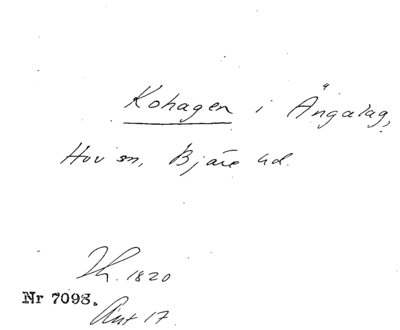 Kohagen i Ängalag,
Hov sn, Bjäre hd.
Th. 1820
Nr 7098.
Ant 17.